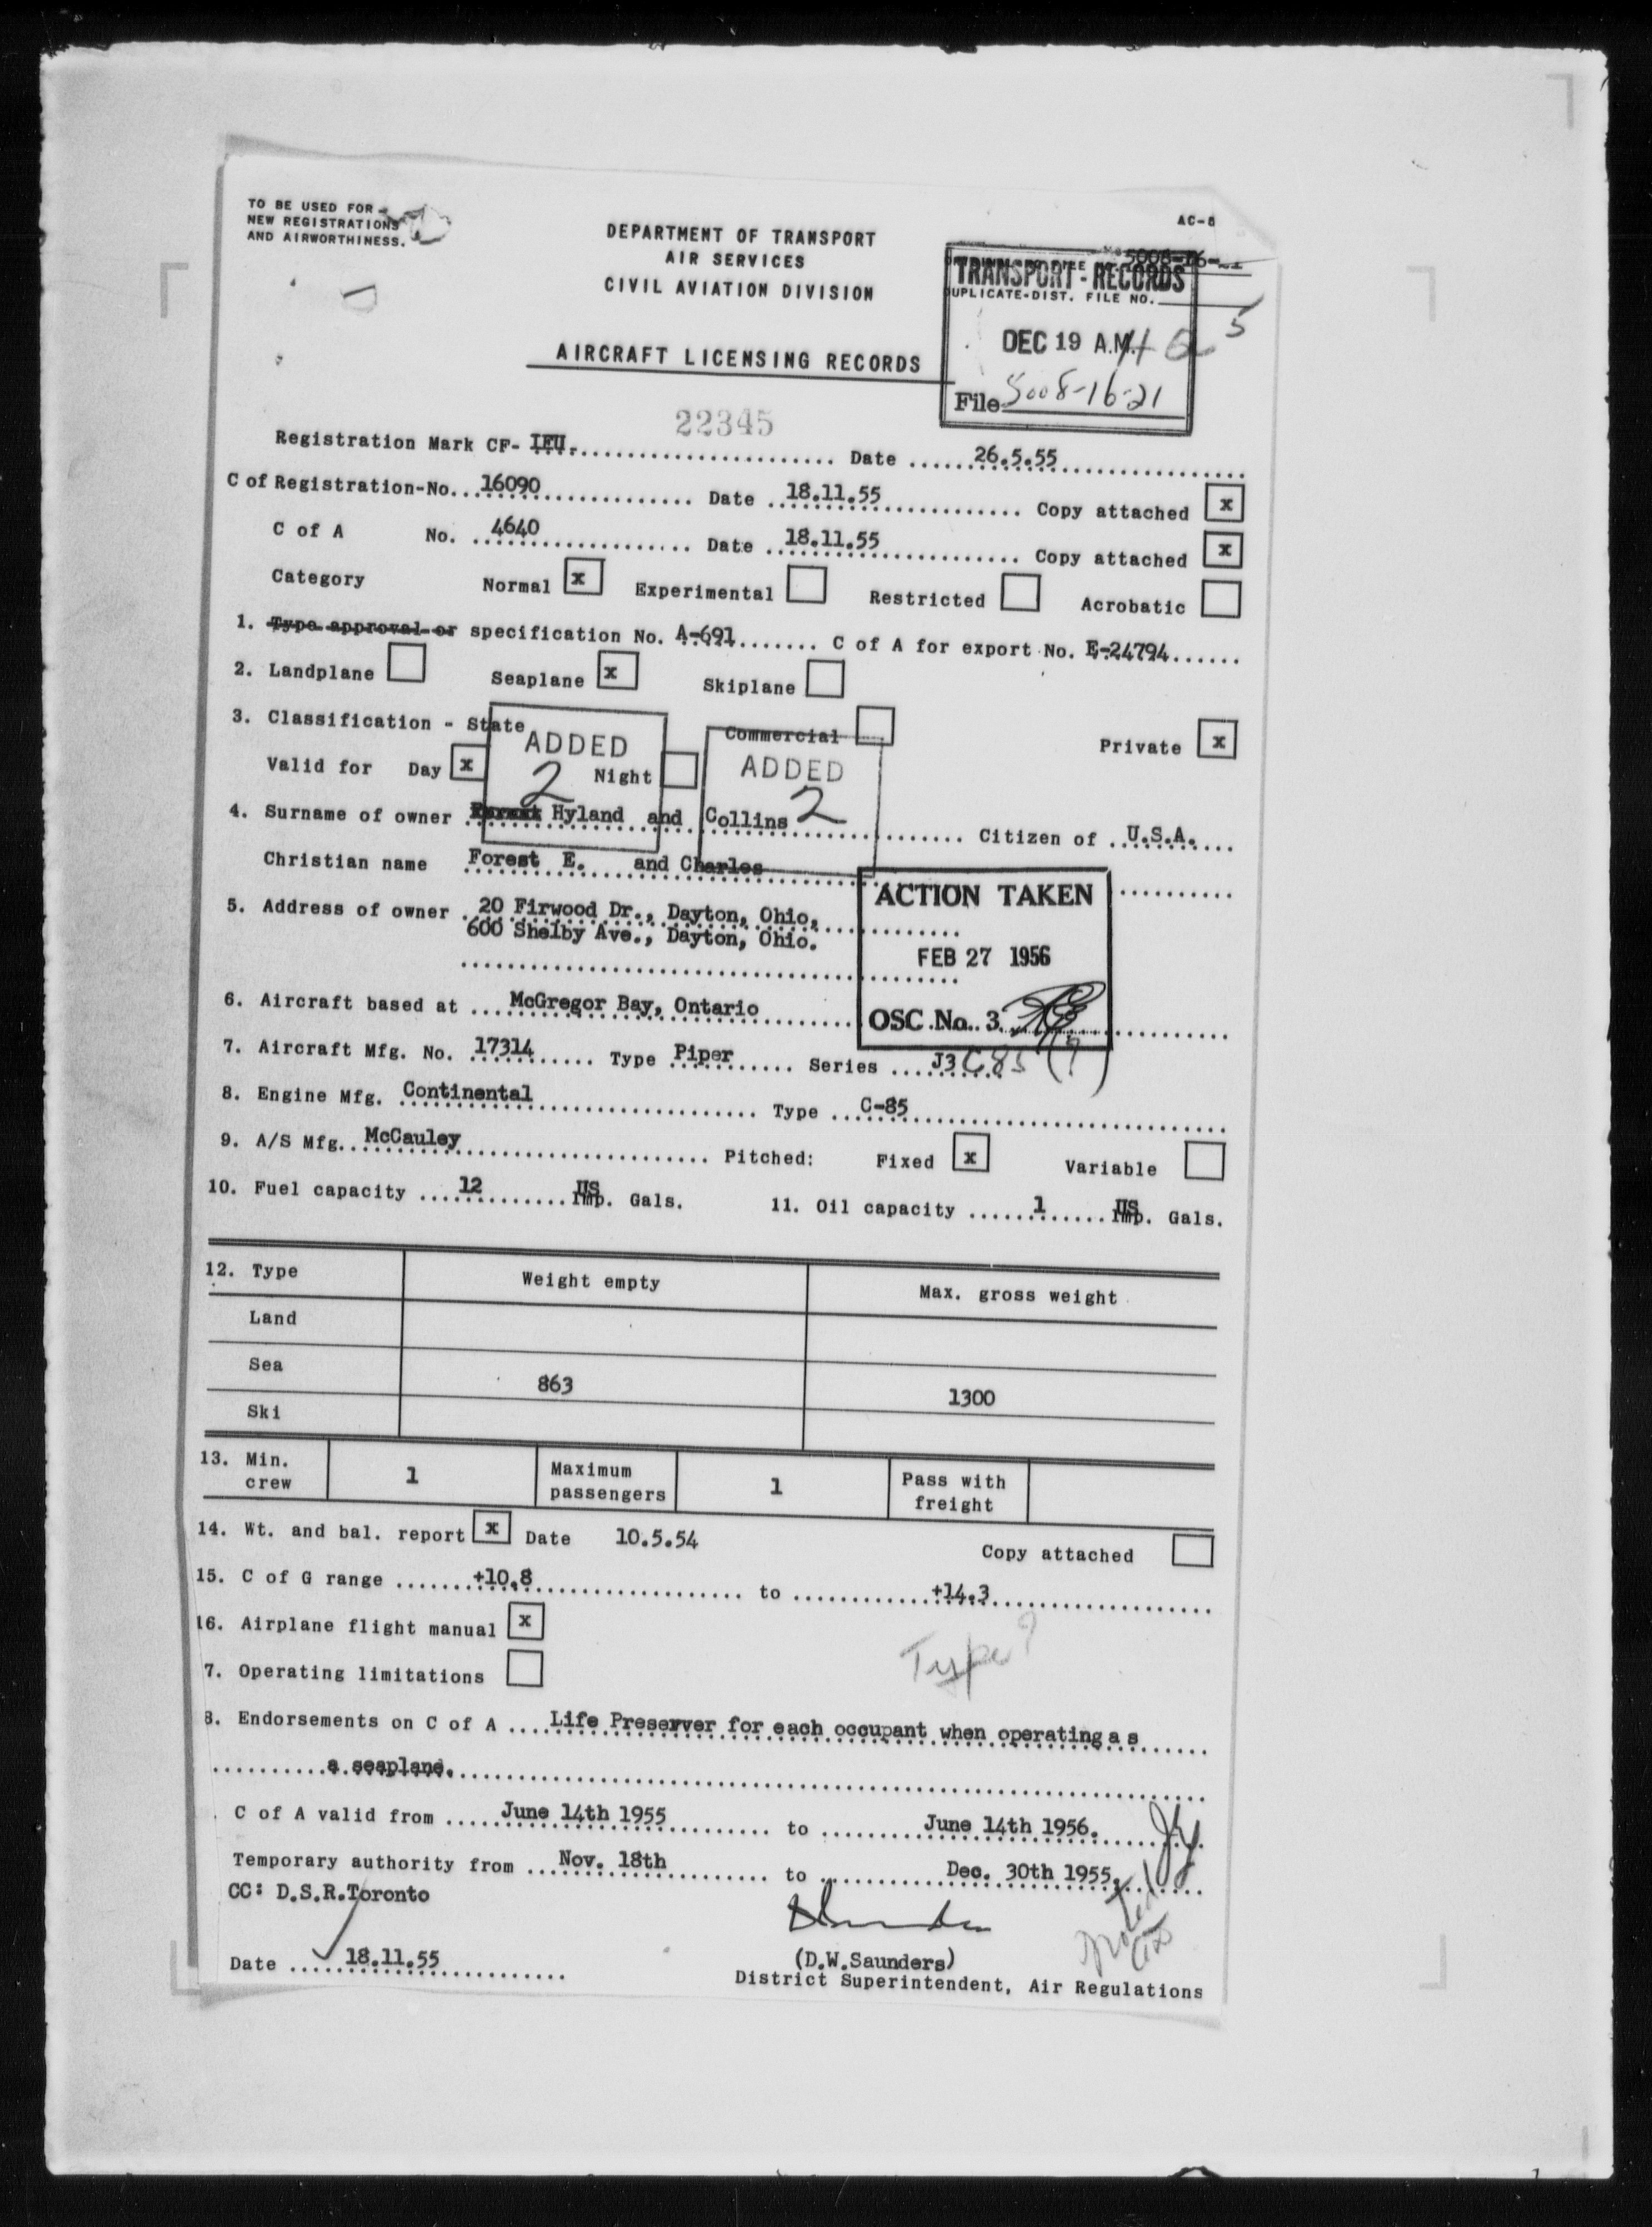 TO BE USED FOR
NEW REGISTRATIONS
AND AIRWORTHINESS.
AC-8
DEPARTMENT OF TRANSPORT
AIR SERVICES
CIVIL AVIATION DIVISION
5008-16-21
TRANSPORT - RECORDS
DUPLICATE-DIST. FILE NO.
DEC 19 A.M.
5
File 5008-16-21
AIRCRAFT LICENSING RECORDS
22345
Registration Mark CF- IEU. Date 26.5.55
C of Registration-No. 16090 Date 18.11.55 Copy attached x
C of A No. 4640 Date 18.11.55 Copy attached x
Category Normal x Experimental Restricted Acrobatic
1. Type approval or specification No. A-691 C of A for export No. E-24794
2. Landplane Seaplane x Skiplane
3. Classification - State Commercial Private x
ADDED 2
ADDED 2
Valid for Day x Night
4. Surname of owner Hyland and Collins Citizen of U.S.A.
Christian name Forest E. and Charles
5. Address of owner 20 Firwood Dr., Dayton, Ohio,
600 Shelby Ave., Dayton, Ohio.
ACTION TAKEN
FEB 27 1956
OSC No. 3
6. Aircraft based at McGregor Bay, Ontario
7. Aircraft Mfg. No. 17314 Type Piper Series J3 C85 (?)
8. Engine Mfg. Continental Type C-85
9. A/S Mfg. McCauley Pitched: Fixed x Variable
10. Fuel capacity 12 US Imp. Gals. 11. Oil capacity 1 US Imp. Gals.
12. Type Weight empty Max. gross weight
Land
Sea 863 1300
Ski
13. Min. crew 1 Maximum passengers 1 Pass with freight
14. Wt. and bal. report x Date 10.5.54 Copy attached
15. C of G range +10.8 to +14.3
16. Airplane flight manual x
Type?
7. Operating limitations
8. Endorsements on C of A Life Preserver for each occupant when operating a s
a seaplane.
C of A valid from June 14th 1955 to June 14th 1956.
Temporary authority from Nov. 18th to Dec. 30th 1955.
CC: D.S.R.Toronto
Noted
Date 18.11.55
(D.W.Saunders)
District Superintendent, Air Regulations